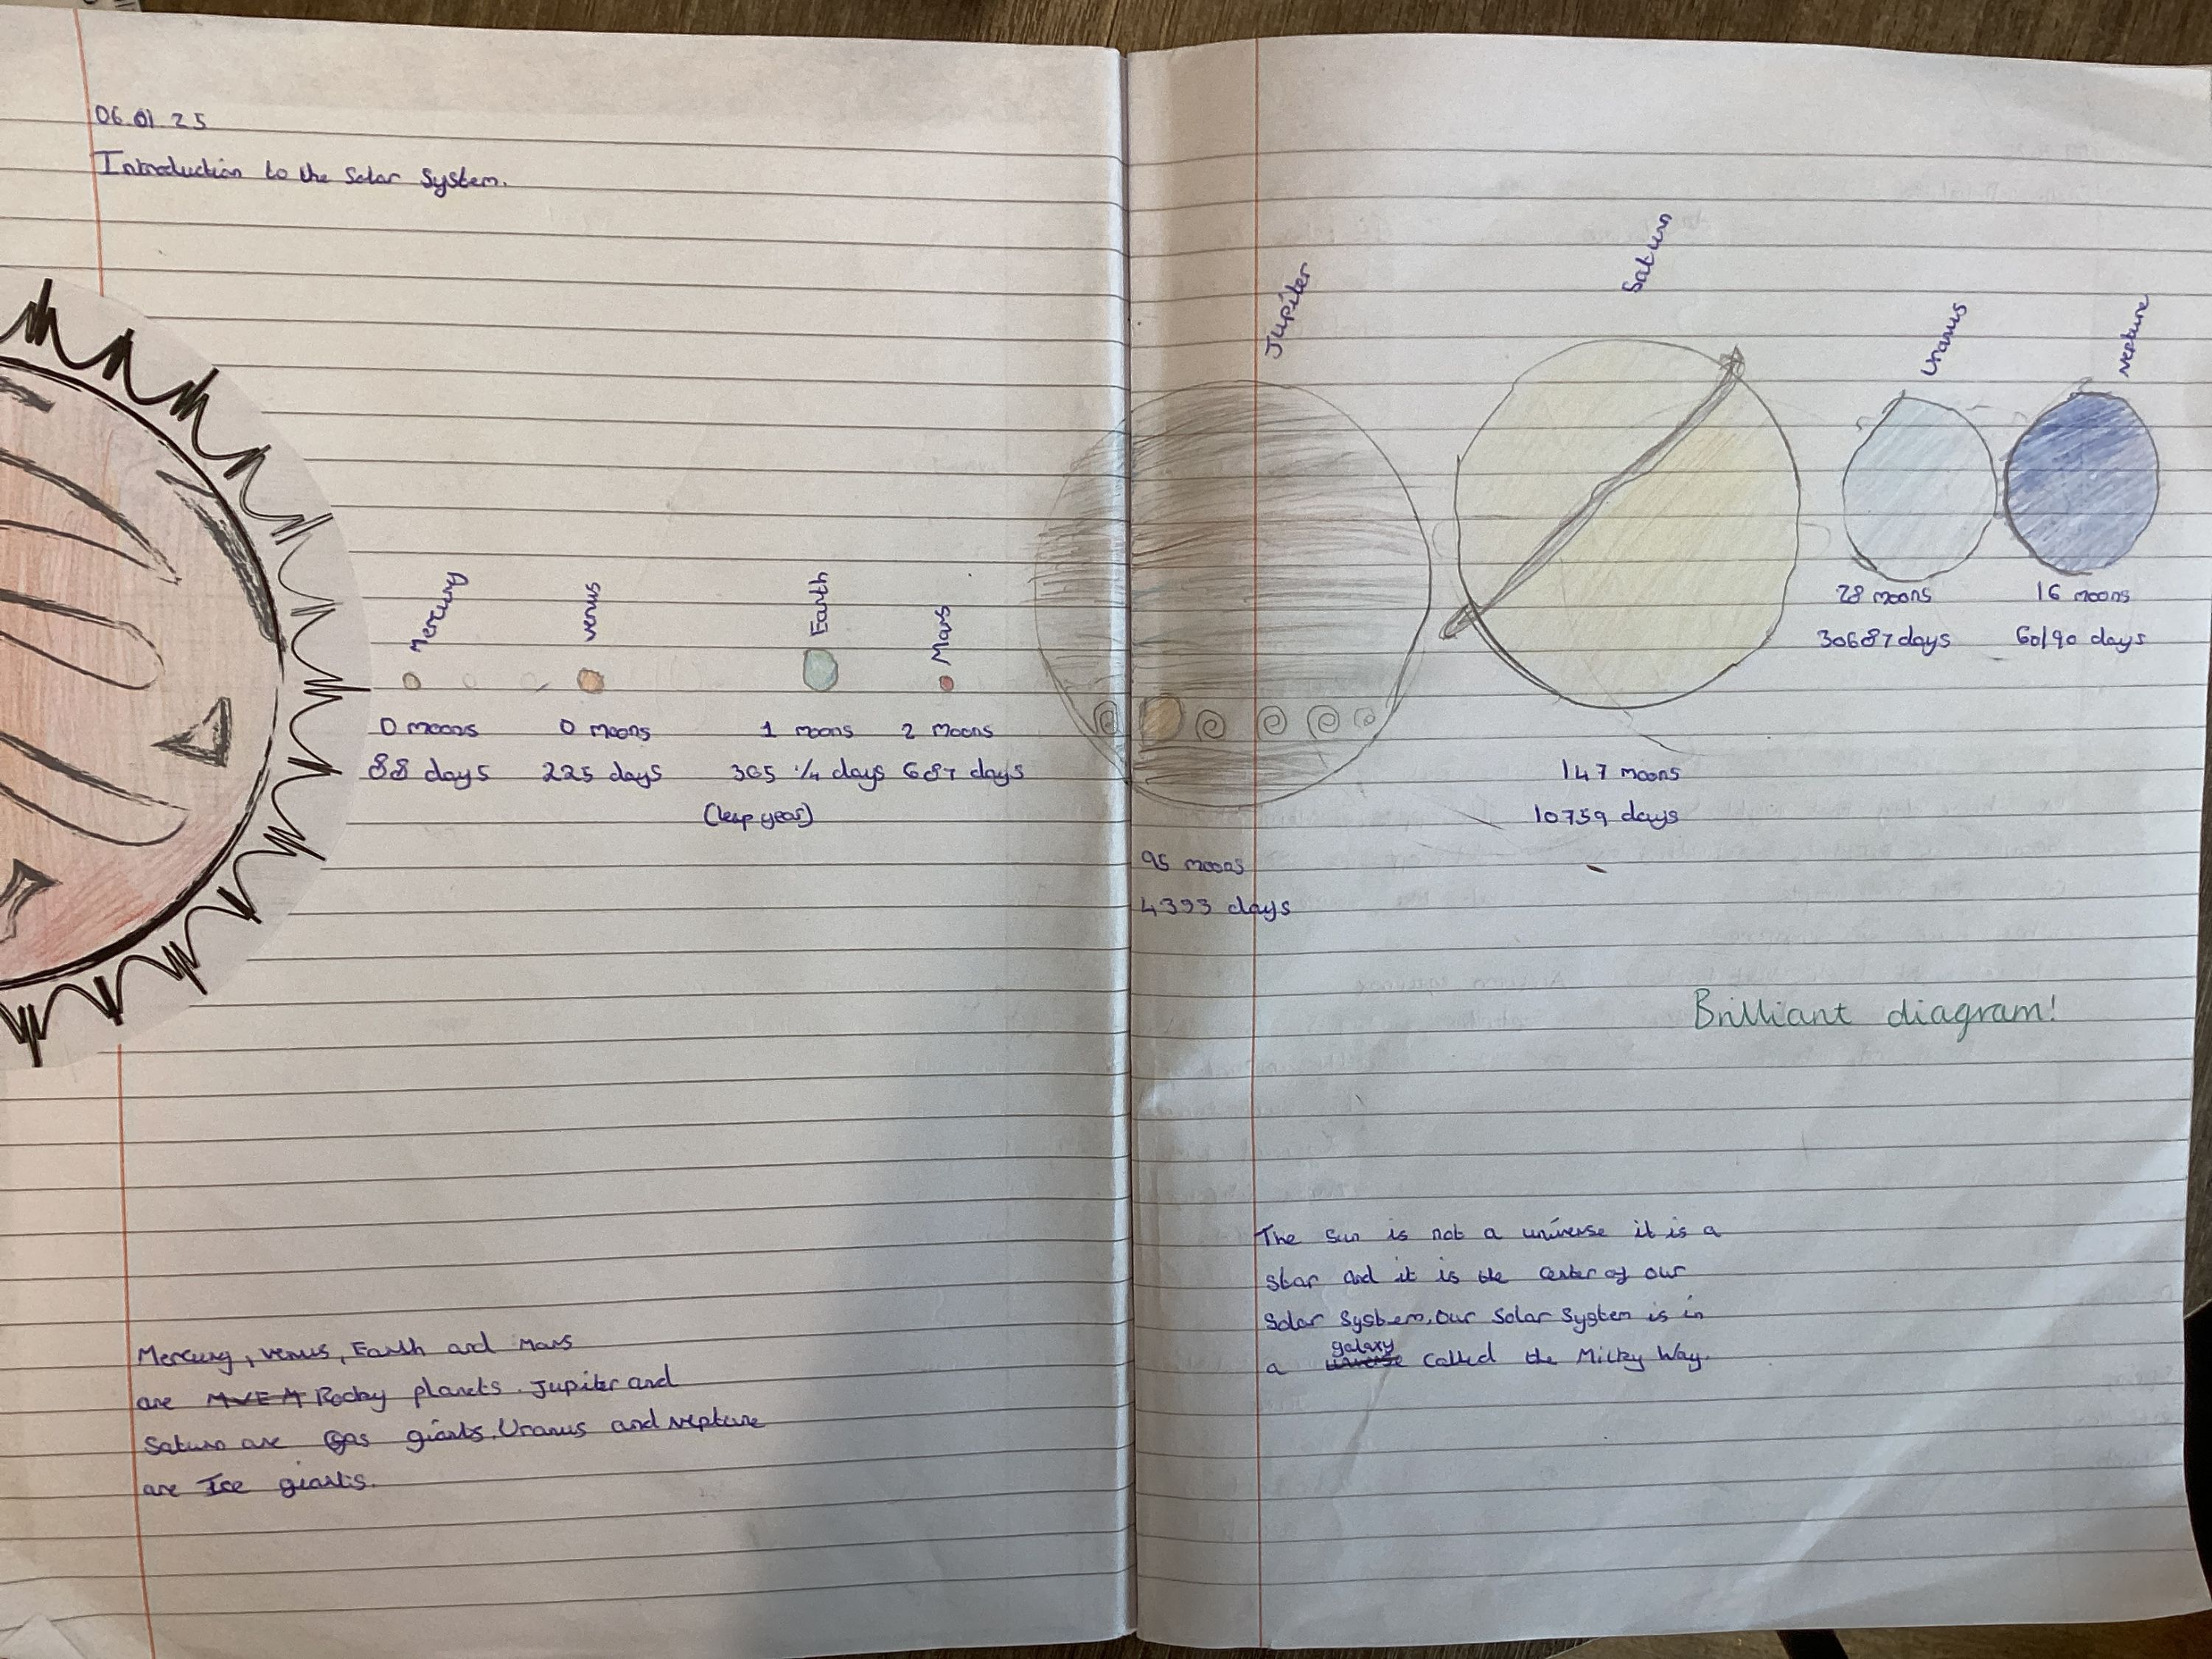 06.01.25
Introduction to the Solar System.
Mercury
Venus
Earth
Mars
0 moons
0 moons
1 moons
2 moons
88 days
225 days
365 1/4 days
687 days
(leap year)
Mercury, Venus, Earth and Mars
are MVEM Rocky planets. Jupiter and
Saturn are Gas giants. Uranus and Neptune
are Ice giants.
Jupiter
Saturn
Uranus
Neptune
28 moons
16 moons
30687 days
60190 days
147 moons
10759 days
95 moons
4333 days
Brilliant diagram!
The Sun is not a universe it is a
star and it is the center of our
Solar System. Our Solar System is in
galaxy
a universe called the Milky Way.